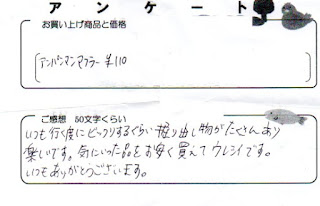 アンケート
お買い上げ商品と価格
アンパンマンマフラー ¥110
ご感想 50文字くらい
いつも行く度にビックリするくらい掘り出し物がたくさんあり
楽しいです。気にいった品をお安く買えてウレシイです。
いつもありがとうございます。